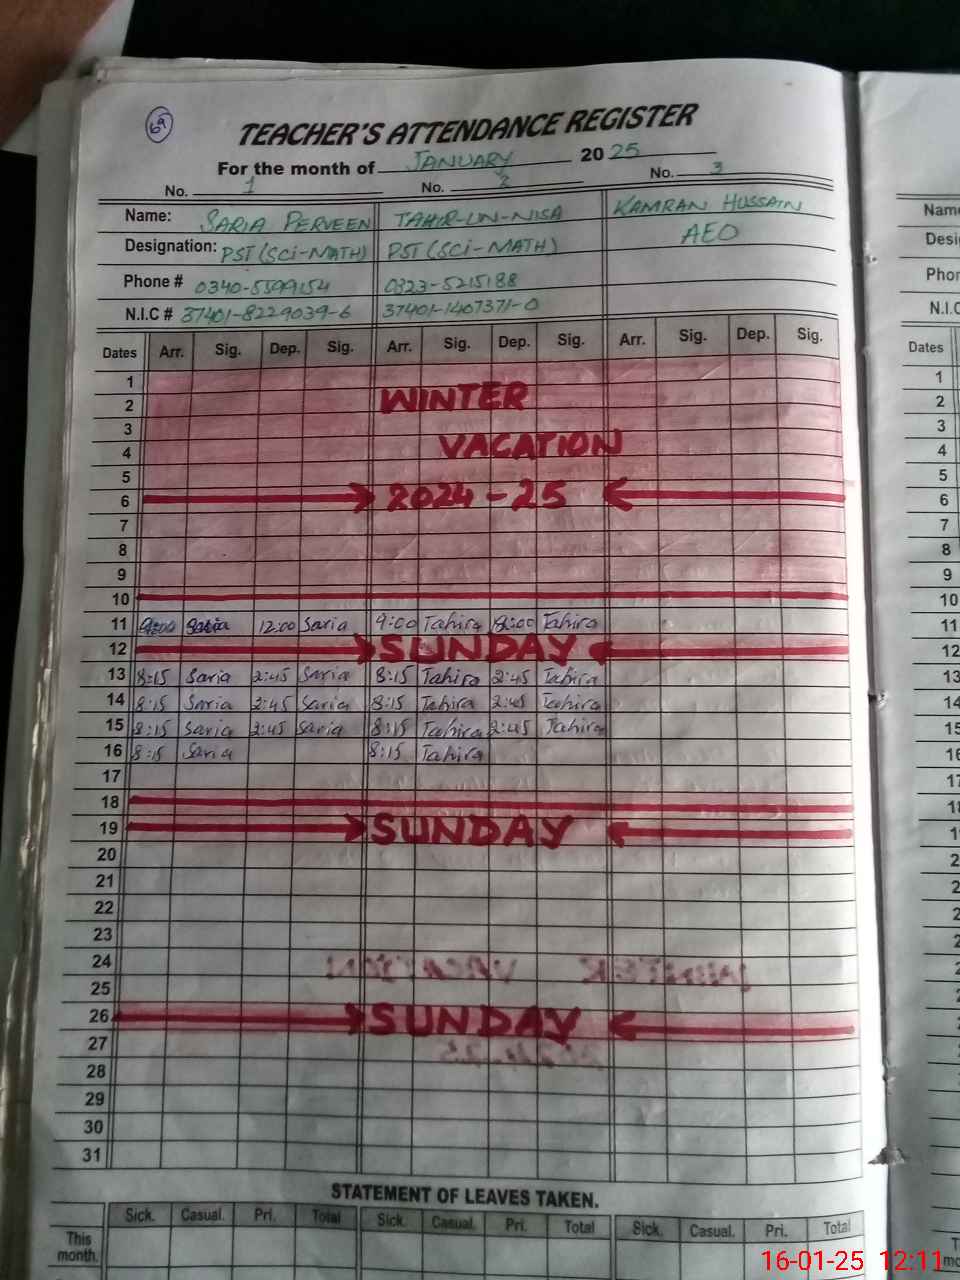 69
TEACHER'S ATTENDANCE REGISTER
For the month of JANUARY 2025
No. 1 No. 2 No. 3
Name: SARIA PERVEEN TAHIR-UN-NISA KAMRAN HUSSAIN
Designation: PST (SCI-MATH) PST (SCI-MATH) AEO
Phone # 0340-5599154 0323-5215188
N.I.C # 37401-8229039-6 37401-1407371-0
Dates Arr. Sig. Dep. Sig. Arr. Sig. Dep. Sig. Arr. Sig. Dep. Sig.
1
2 WINTER
3
4 VACATION
5
6 2024-25
7
8
9
10
11 9:00 Saria 12:00 Saria 9:00 Tahira 12:00 Tahira
12 SUNDAY
13 8:15 Saria 2:45 Saria 8:15 Tahira 2:45 Tahira
14 8:15 Saria 2:45 Saria 8:15 Tahira 2:45 Tahira
15 8:15 Saria 2:45 Saria 8:15 Tahira 2:45 Tahira
16 8:15 Saria 8:15 Tahira
17
18
19 SUNDAY
20
21
22
23
24
25
26 SUNDAY
27
28
29
30
31
STATEMENT OF LEAVES TAKEN.
Sick. Casual. Pri. Total Sick. Casual. Pri. Total Sick. Casual. Pri. Total
This
month.
Name
Desi
Phor
N.I.C
Dates
1
2
3
4
5
6
7
8
9
10
11
12
13
14
15
16
17
18
16-01-25 12:11